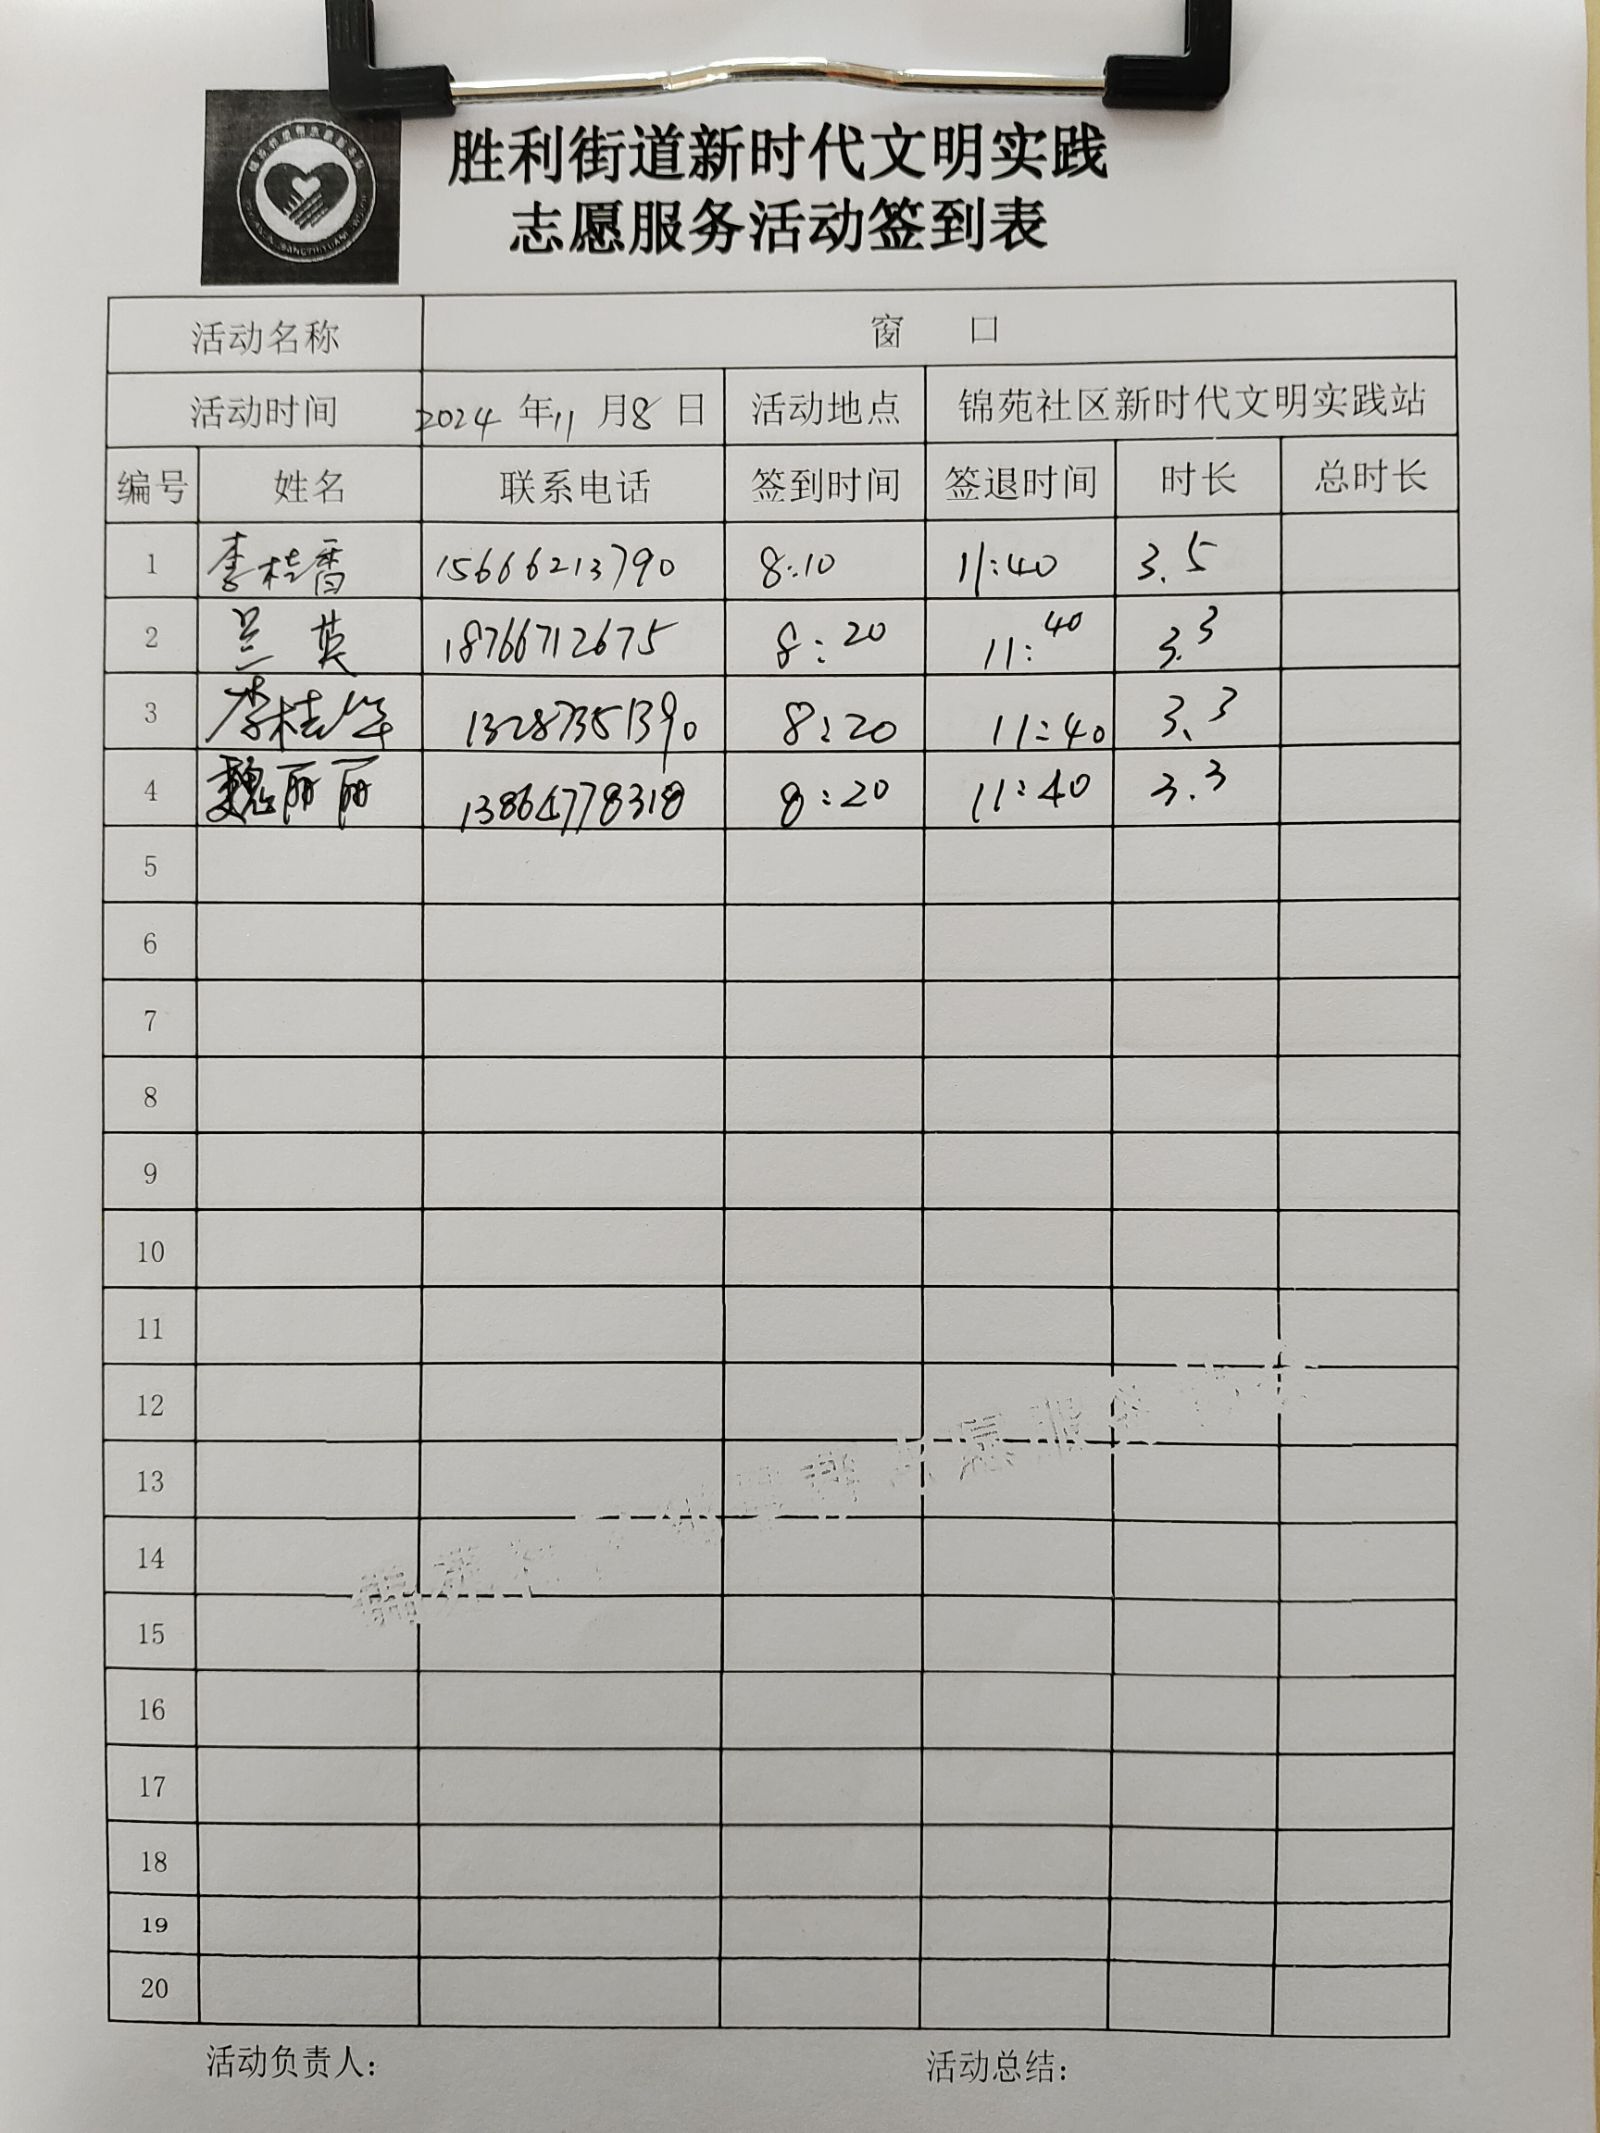 胜利街道新时代文明实践
志愿服务活动签到表
活动名称 窗 口
活动时间 2024 年 11 月 8 日 活动地点 锦苑社区新时代文明实践站
编号 姓名 联系电话 签到时间 签退时间 时长 总时长
1 李桂香 15666213790 8:10 11:40 3.5
2 兰英 18766712675 8:20 11:40 3.3
3 李桂华 13287351390 8:20 11:40 3.3
4 魏丽丽 13864778318 8:20 11:40 3.3
5
6
7
8
9
10
11
12
13
14
15
16
17
18
19
20
活动负责人: 活动总结: